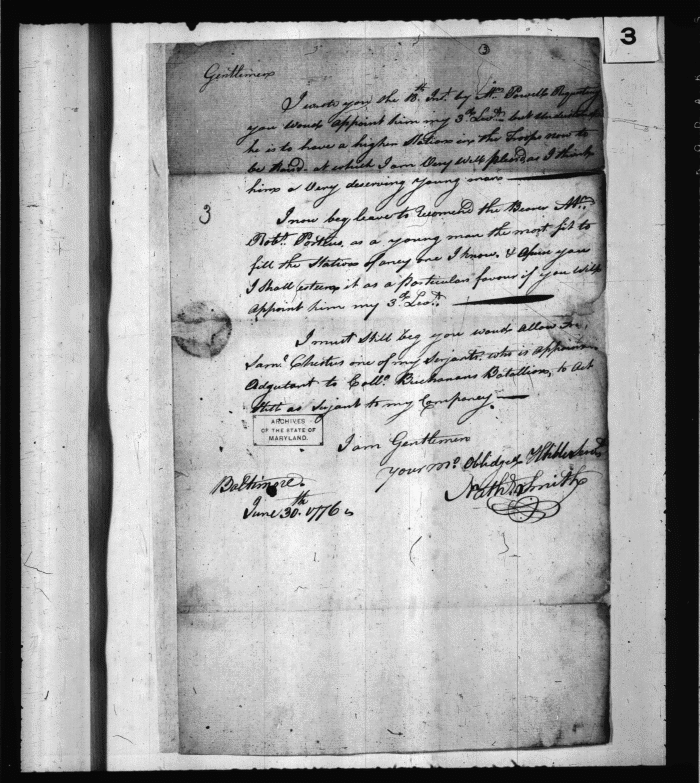 3
3
Gentlemen
I wrote you the 18th Int. by Mr. Powell Requesting
you woud appoint him my 3d. Leut. but understand
he is to have a higher Station in the Troops now to
be Raisd. at which I am Very well pleasd as I think
him a Very deserving young man
I now beg leave to Recomend the Bearer Mr.
3
Robt. Porteus, as a young man the most fit to
fill the Station of any one I know, & asure you
I Shall esteem it as a Particular favour if you will
appoint him my 3d. Leut.
I must Still beg you woud allow
Saml. Christie one of my Serjants, who is appointed
Adjutant to Collo. Buchanans Batallion, to Act
Still as Serjant to my Company.
ARCHIVES
OF THE STATE OF
MARYLAND.
I am Gentlemen
Your Mo. Obbidged Hble Servt.
Nathl. Smith
Baltimore.
June 30.th 1776